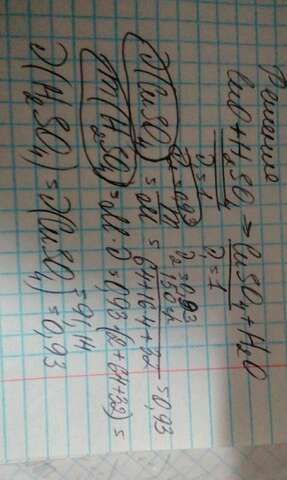 Решение
CuO + H₂SO₄ = CuSO₄ + H₂O
ν=1 ν=1
ν₁=0,93 ν₂=0,93
ν(CuSO₄) = m/M = 150/64+16·4+32 = 0,93
m(H₂SO₄) = M·ν = 0,93·(2+64+32) =
= 91,14
ν(H₂SO₄) = ν(CuSO₄) = 0,93